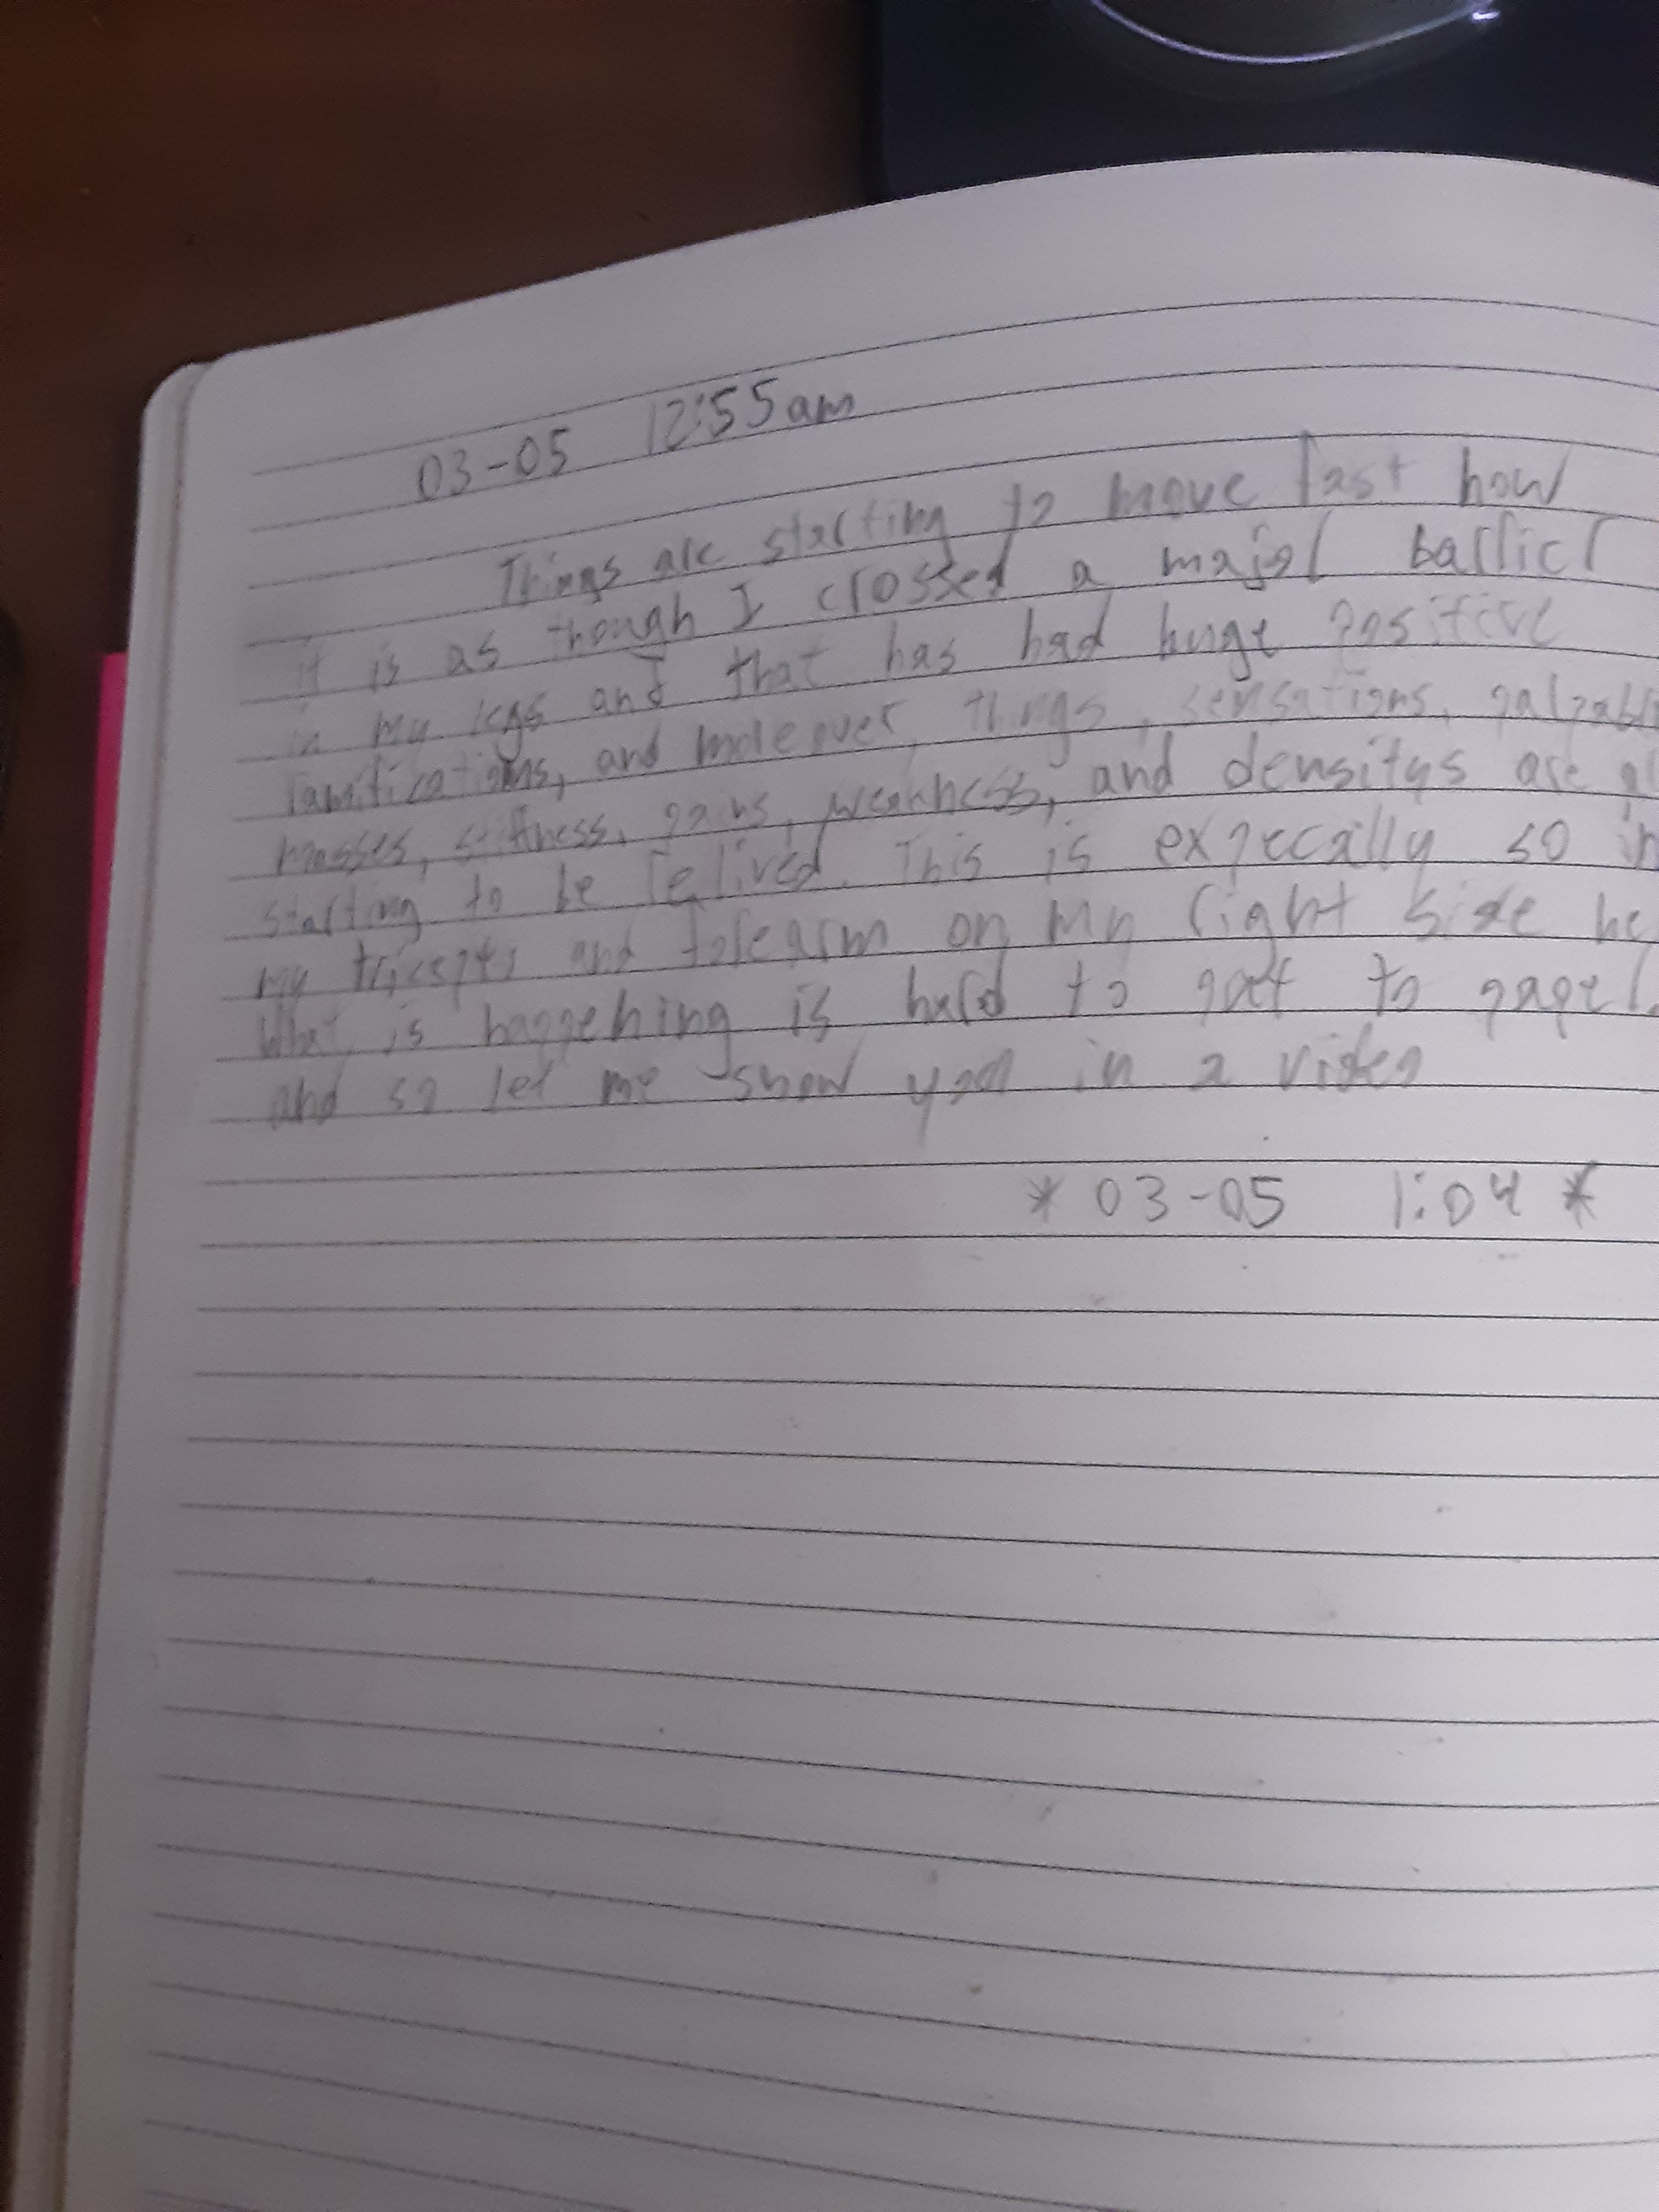 03-05 12:55am
Things are starting to move fast how
it is as though I crossed a major barrier
in my legs and that has had huge positive
ramifications, and moreover, things, sensations, palpable
masses, stiffness, pains, weakness, and densitys are al
starting to be relived. This is expecally so in
my tricepts and forearm on my right side he
What is happening is hard to put to paper.
and so let me show you in a video
* 03-05 1:04 *